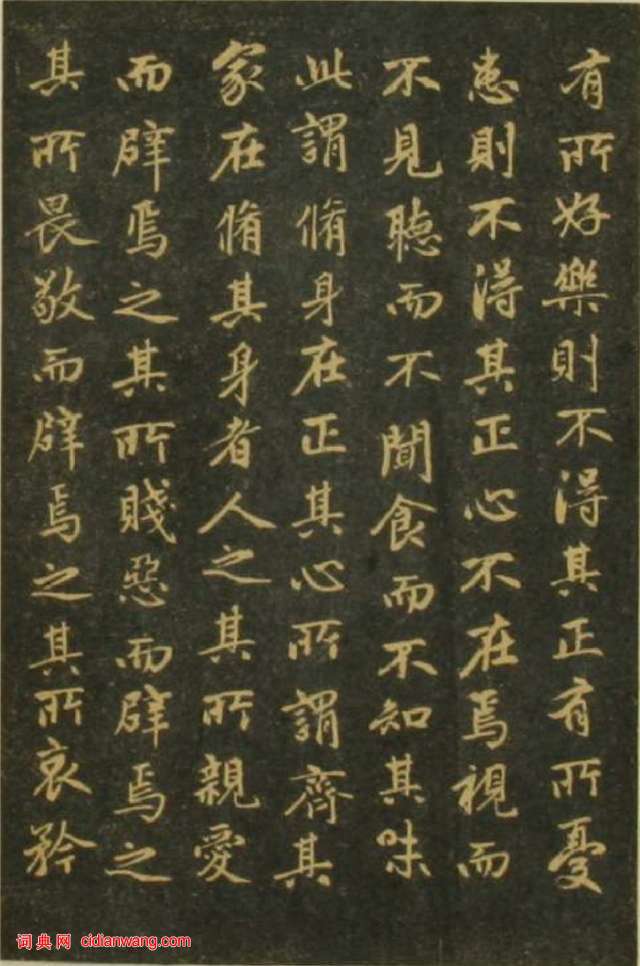 有所好樂則不得其正有所憂
患則不得其正心不在焉視而
不見聽而不聞食而不知其味
此謂脩身在正其心所謂齊其
家在脩其身者人之其所親愛
而辟焉之其所賤惡而辟焉之
其所畏敬而辟焉之其所哀矜
词典网 cidianwang.com